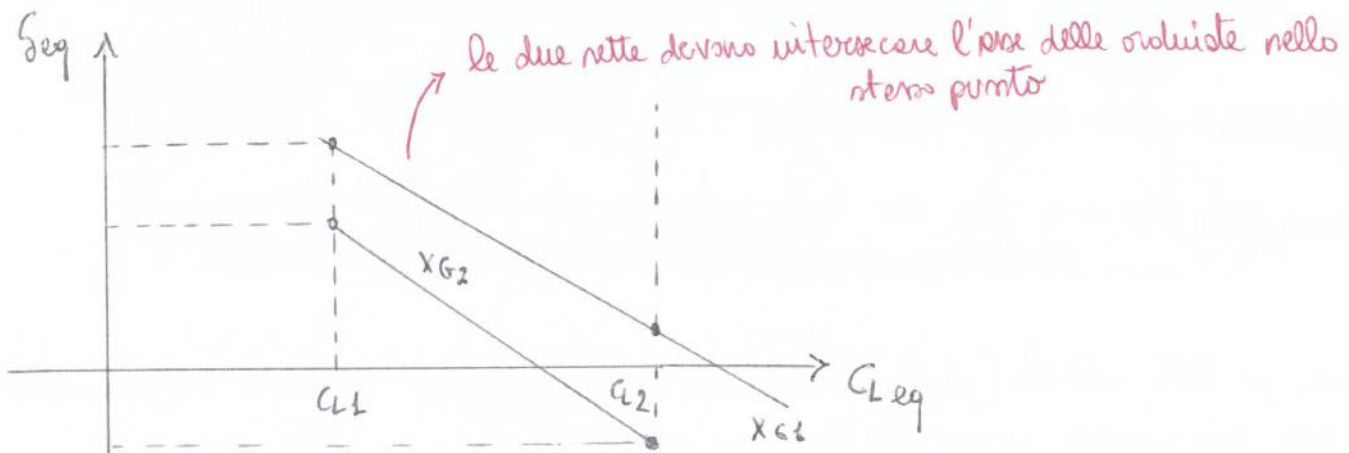 δeq
le due rette devono intersecare l'asse delle ordinate nello
stesso punto
XG2
CL1
CL2
CL eq
XG1